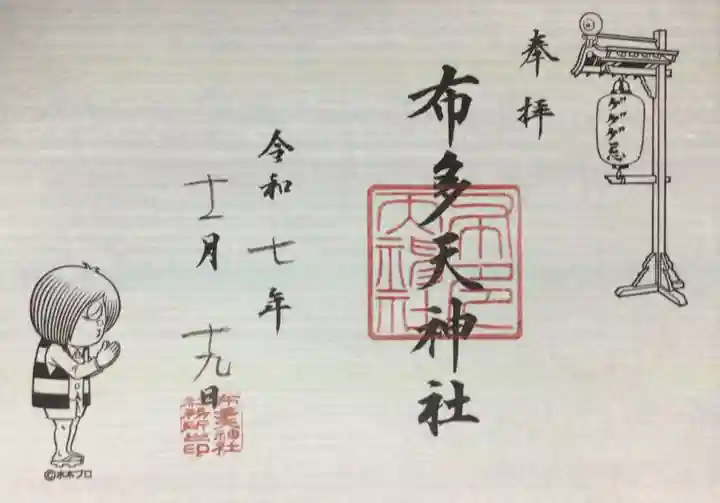 奉拝
ゲゲゲ忌
布多天神社
令和七年
十一月十九日
布多天神社
社務所之印
©水木プロ